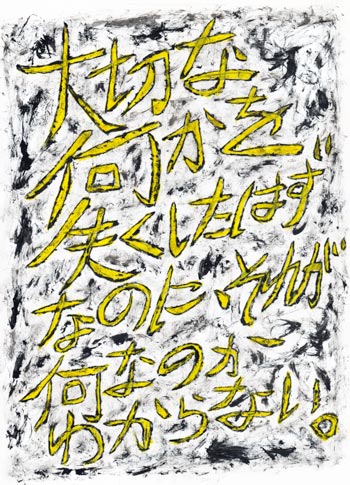 大切な
何かを
失くしたはず
なのに、それが
何なのか
わからない。